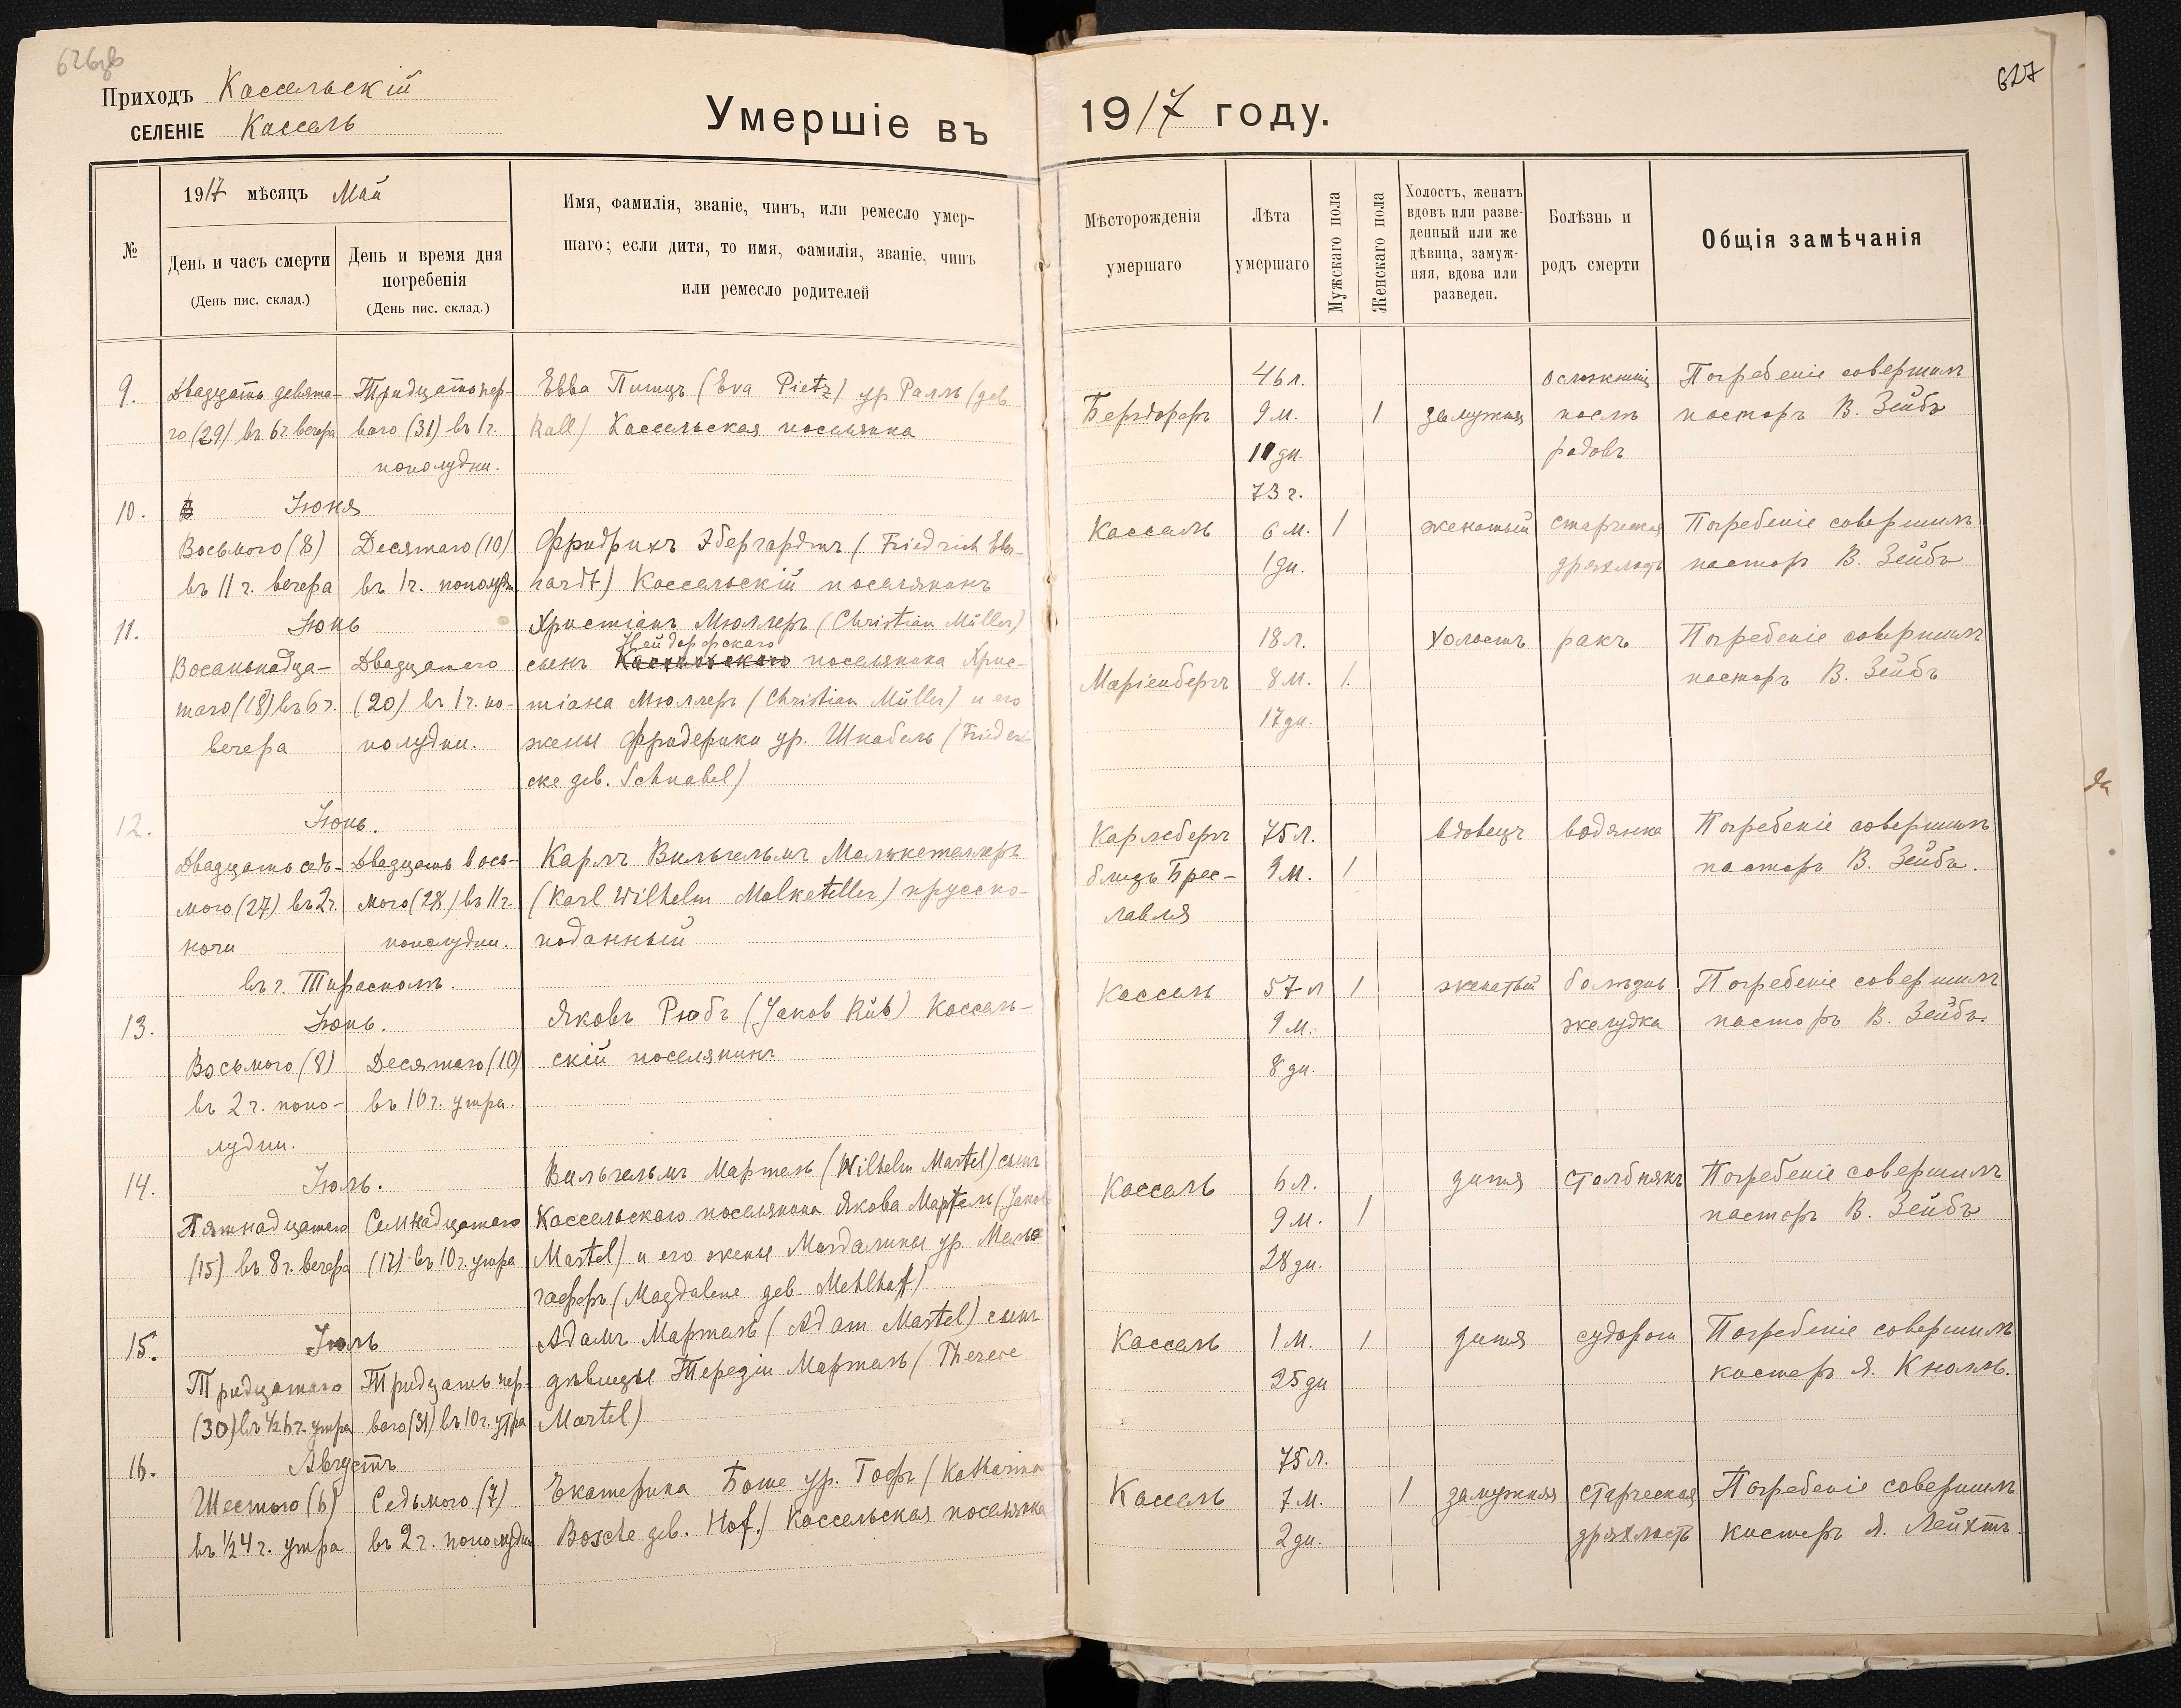 626об
Приходъ Кассельскій
СЕЛЕНІЕ Кассель
Умершіе въ 1917 году.
627
№
1917 мѣсяцъ Май
День и часъ смерти
(День пис. склад.)
День и время дня
погребенія
(День пис. склад.)
Имя, фамилія, званіе, чинъ, или ремесло умер-
шаго; если дитя, то имя, фамилія, званіе, чинъ
или ремесло родителей
Мѣсторожденія
умершаго
Лѣта
умершаго
Мужскаго пола
Женскаго пола
Холостъ, женатъ
вдовъ или разве-
денный или же
дѣвица, замуж-
няя, вдова или
разведен.
Болѣзнь и
родъ смерти
Общія замѣчанія
9.
Двадцать девята-
го (29) въ 6 ч. вечера
Тридцать пер-
ваго (31) въ 1 ч.
пополудни.
Евва Питцъ (Eva Pietz) ур. Ралль (geb.
Rall) Кассельская поселянка
Бергдорфъ
46 л.
9 м.
10 дн.
1
замужняя
осложненіе
послѣ
родовъ
Погребеніе совершилъ
пасторъ В. Зейбъ
10.
Іюня
Восьмого (8)
въ 11 ч. вечера
Десятаго (10)
въ 1 ч. пополудн.
Фридрихъ Эбергардтъ (Friedrich Eber-
hardt) Кассельскій поселянинъ
Кассель
73 г.
6 м.
1 дн.
1
женатый
старческая
дряхлость
Погребеніе совершилъ
пасторъ В. Зейбъ
11.
Іюнь
Восемьнадца-
таго (18) въ 6 ч.
вечера
Двадцатаго
(20) въ 1 ч. по-
полудни.
Христіанъ Мюллеръ (Christian Müller)
Нейдорфскаго
сынъ Кассельскаго поселянина Хрис-
тіана Мюллеръ (Christian Müller) и его
жены Фридерики ур. Шнабель (Friederi-
ске geb. Schnabel)
Маріенбергъ
18 л.
8 м.
17 дн.
1.
холостъ
ракъ
Погребеніе совершилъ
пасторъ В. Зейбъ
12.
Іюнь.
Двадцать седь-
мого (27) въ 2 ч.
ночи
въ г. Тирасполѣ.
Двадцать вось-
мого (28) въ 11 ч.
пополудни.
Карлъ Вильгельмъ Малькетеллеръ
(Karl Wilhelm Malketeller) прусско-
поданный
Карлсбергъ
близъ Брес-
лавля
75 л.
9 м.
1
вдовецъ
водянка
Погребеніе совершилъ
пасторъ В. Зейбъ.
13.
Іюнь.
Восьмого (8)
въ 2 ч. попо-
лудни.
Десятаго (10)
въ 10 ч. утра.
Яковъ Рюбъ (Jakob Rüb) Кассель-
скій поселянинъ
Кассель
57 л
9 м.
8 дн.
1
женатый
болѣзнь
желудка
Погребеніе совершилъ
пасторъ В. Зейбъ.
14.
Іюль.
Пятнадцатаго
(15) въ 8 ч. вечера
Семнадцатаго
(17) въ 10 ч. утра
Вильгельмъ Мартель (Wilhelm Martel) сынъ
Кассельскаго поселянина Якова Мартель (Jakob
Martel) и его жены Магдалины ур. Мель
гаффъ (Magdalene geb. Mehlhaff)
Кассель
6 л.
9 м.
28 дн.
1
дитя
столбнякъ
Погребеніе совершилъ
пасторъ В. Зейбъ
15.
Іюль
Тридцатаго
(30) въ ½ 6 ч. утра
Тридцать пер-
ваго (31) въ 10 ч. утра
Адамъ Мартель (Adam Martel) сынъ
дѣвицы Терезіи Мартель (Therese
Martel)
Кассель
1 м.
25 дн
1
дитя
судороги
Погребеніе совершилъ
кистеръ Я. Кнолль.
16.
Августъ
Шестого (6)
въ ½ 4 ч. утра
Седьмого (7)
въ 2 ч. пополудни
Екатерина Боше ур. Гофъ (Katharina
Bosche geb. Hof.) Кассельская поселянка
Кассель
75 л.
7 м.
2 дн.
1
замужняя
старческая
дряхлость
Погребеніе совершилъ
кистеръ Я. Лейхтъ.